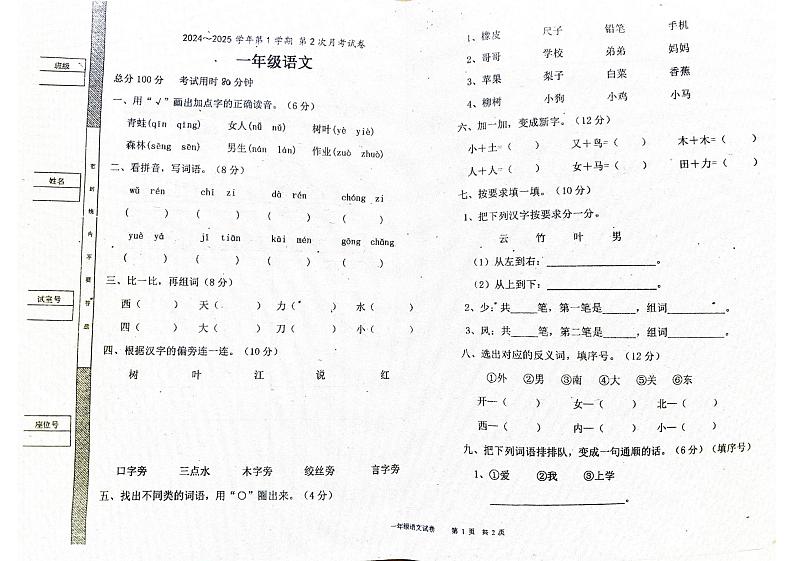 2024～2025 学年第 1 学期 第 2 次月考试卷
一年级语文
总分 100 分 考试用时 90 分钟
一、用“√”画出加点字的正确读音。（6 分）
青蛙(qīn qīng) 女人(nǚ nǔ) 树叶(yè yiè)
森林(sēng sēn) 男生(nán lán) 作业(zuò zhuò)
二、看拼音，写词语。（8 分）
wǔ rén chǐ zi dà rén chóng zi
( ) ( ) ( ) ( )
yuè yá jī tiān kāi mén gōng chǎng
( ) ( ) ( ) ( )
三、比一比，再组词(8 分)
西（ ） 天（ ） 力（ ） 水（ ）
四（ ） 大（ ） 刀（ ） 小（ ）
四、根据汉字的偏旁连一连。（10 分）
树 叶 江 说 红
口字旁 三点水 木字旁 绞丝旁 言字旁
五、找出不同类的词语，用“○”圈出来。（4 分）
1、橡皮 尺子 铅笔 手机
2、哥哥 学校 弟弟 妈妈
3、苹果 梨子 白菜 香蕉
4、柳树 小狗 小鸡 小马
六、加一加，变成新字。（12 分）
小＋土＝（ ） 又＋鸟＝（ ） 木＋木＝（ ）
人＋人＝（ ） 女＋马＝（ ） 田＋力＝（ ）
七、按要求填一填。（10 分）
1、把下列汉字按要求分一分。
云 竹 叶 男
（1）从左到右：____________________
（2）从上到下：____________________
2、少：共_____笔，第一笔是______，组词__________。
3、风：共_____笔，第二笔是______，组词__________。
八、选出对应的反义词，填序号。（12 分）
①外 ②男 ③南 ④大 ⑤关 ⑥东
开—（ ） 女—（ ） 北—（ ）
西—（ ） 内—（ ） 小—（ ）
九、把下列词语排排队，变成一句通顺的话。（6 分）（填序号）
1、①爱 ②我 ③上学
______________________________。
一年级语文试卷 第 1 页 共 2 页
班级
姓名
试室号
座位号